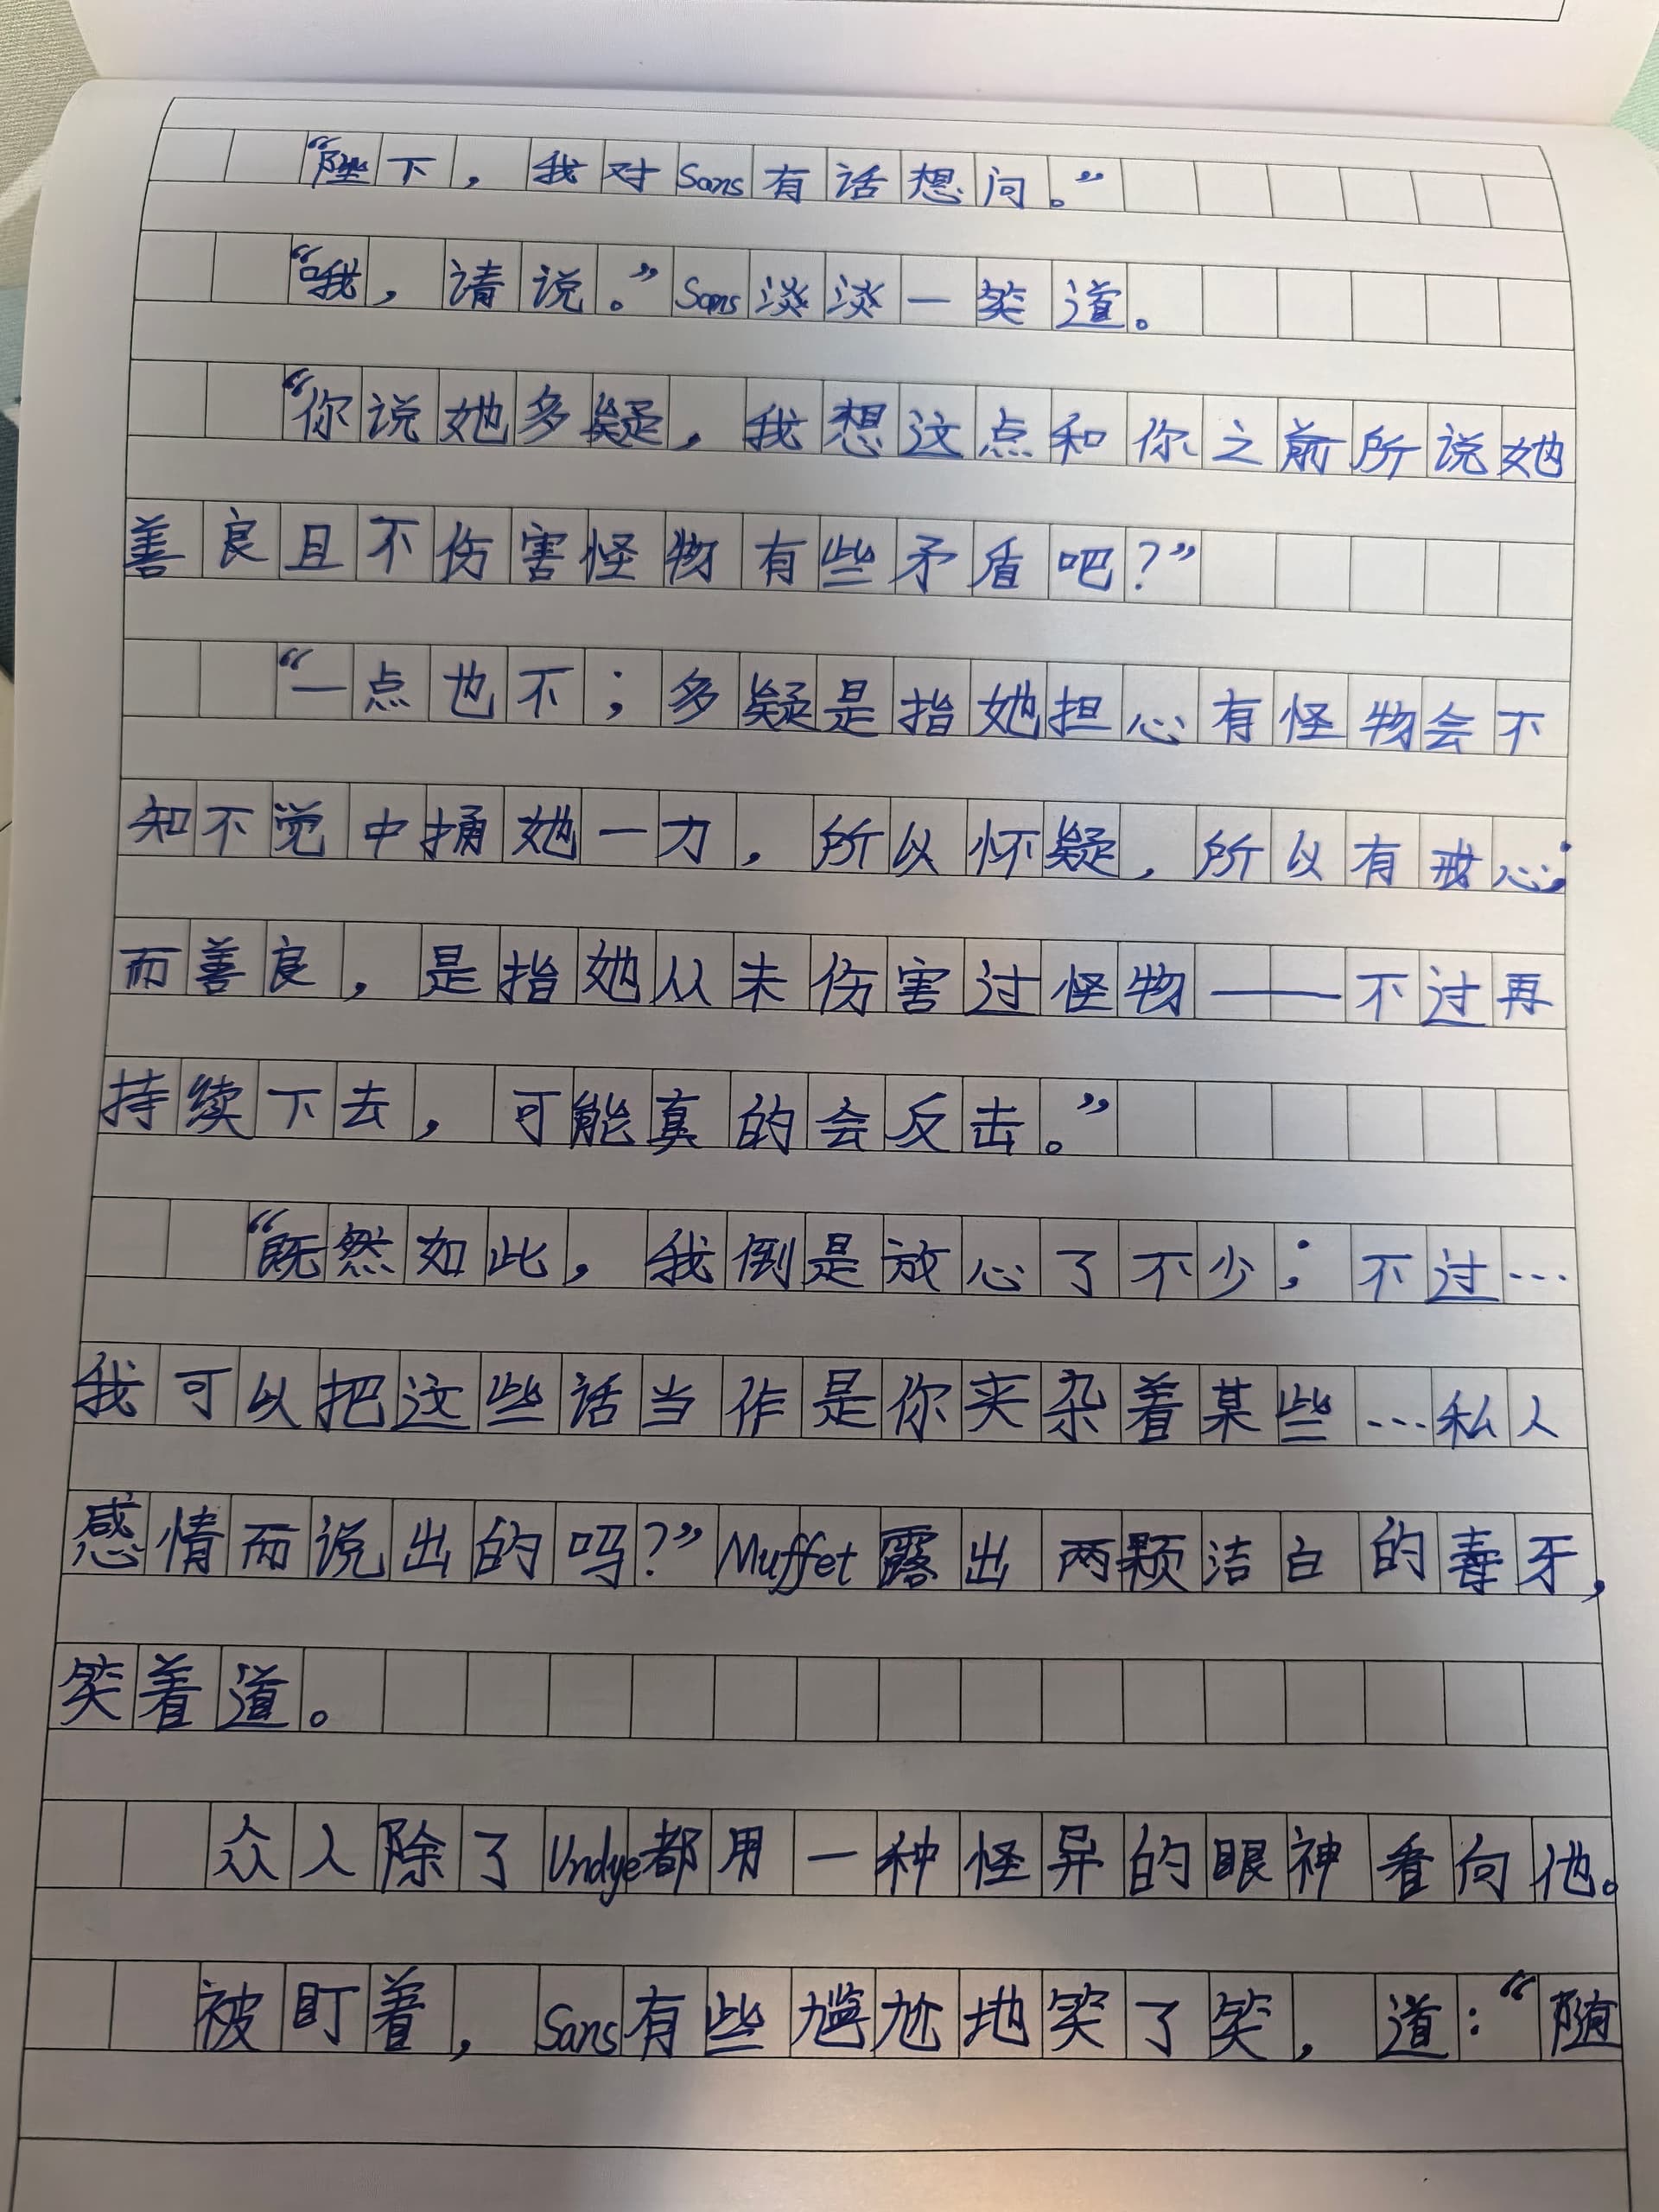 “陛下，我对Sans有话想问。”
“哦，请说。”Sans淡淡一笑道。
“你说她多疑，我想这点和你之前所说她
善良且不伤害怪物有些矛盾吧？”
“一点也不；多疑是指她担心有怪物会不
知不觉中捅她一刀，所以怀疑，所以有戒心；
而善良，是指她从未伤害过怪物——不过再
持续下去，可能真的会反击。”
“既然如此，我倒是放心了不少；不过…
我可以把这些话当作是你夹杂着某些…私人
感情而说出的吗？”Muffet露出两颗洁白的毒牙，
笑着道。
众人除了Undye都用一种怪异的眼神看向他。
被盯着，Sans有些尴尬地笑了笑，道：“随